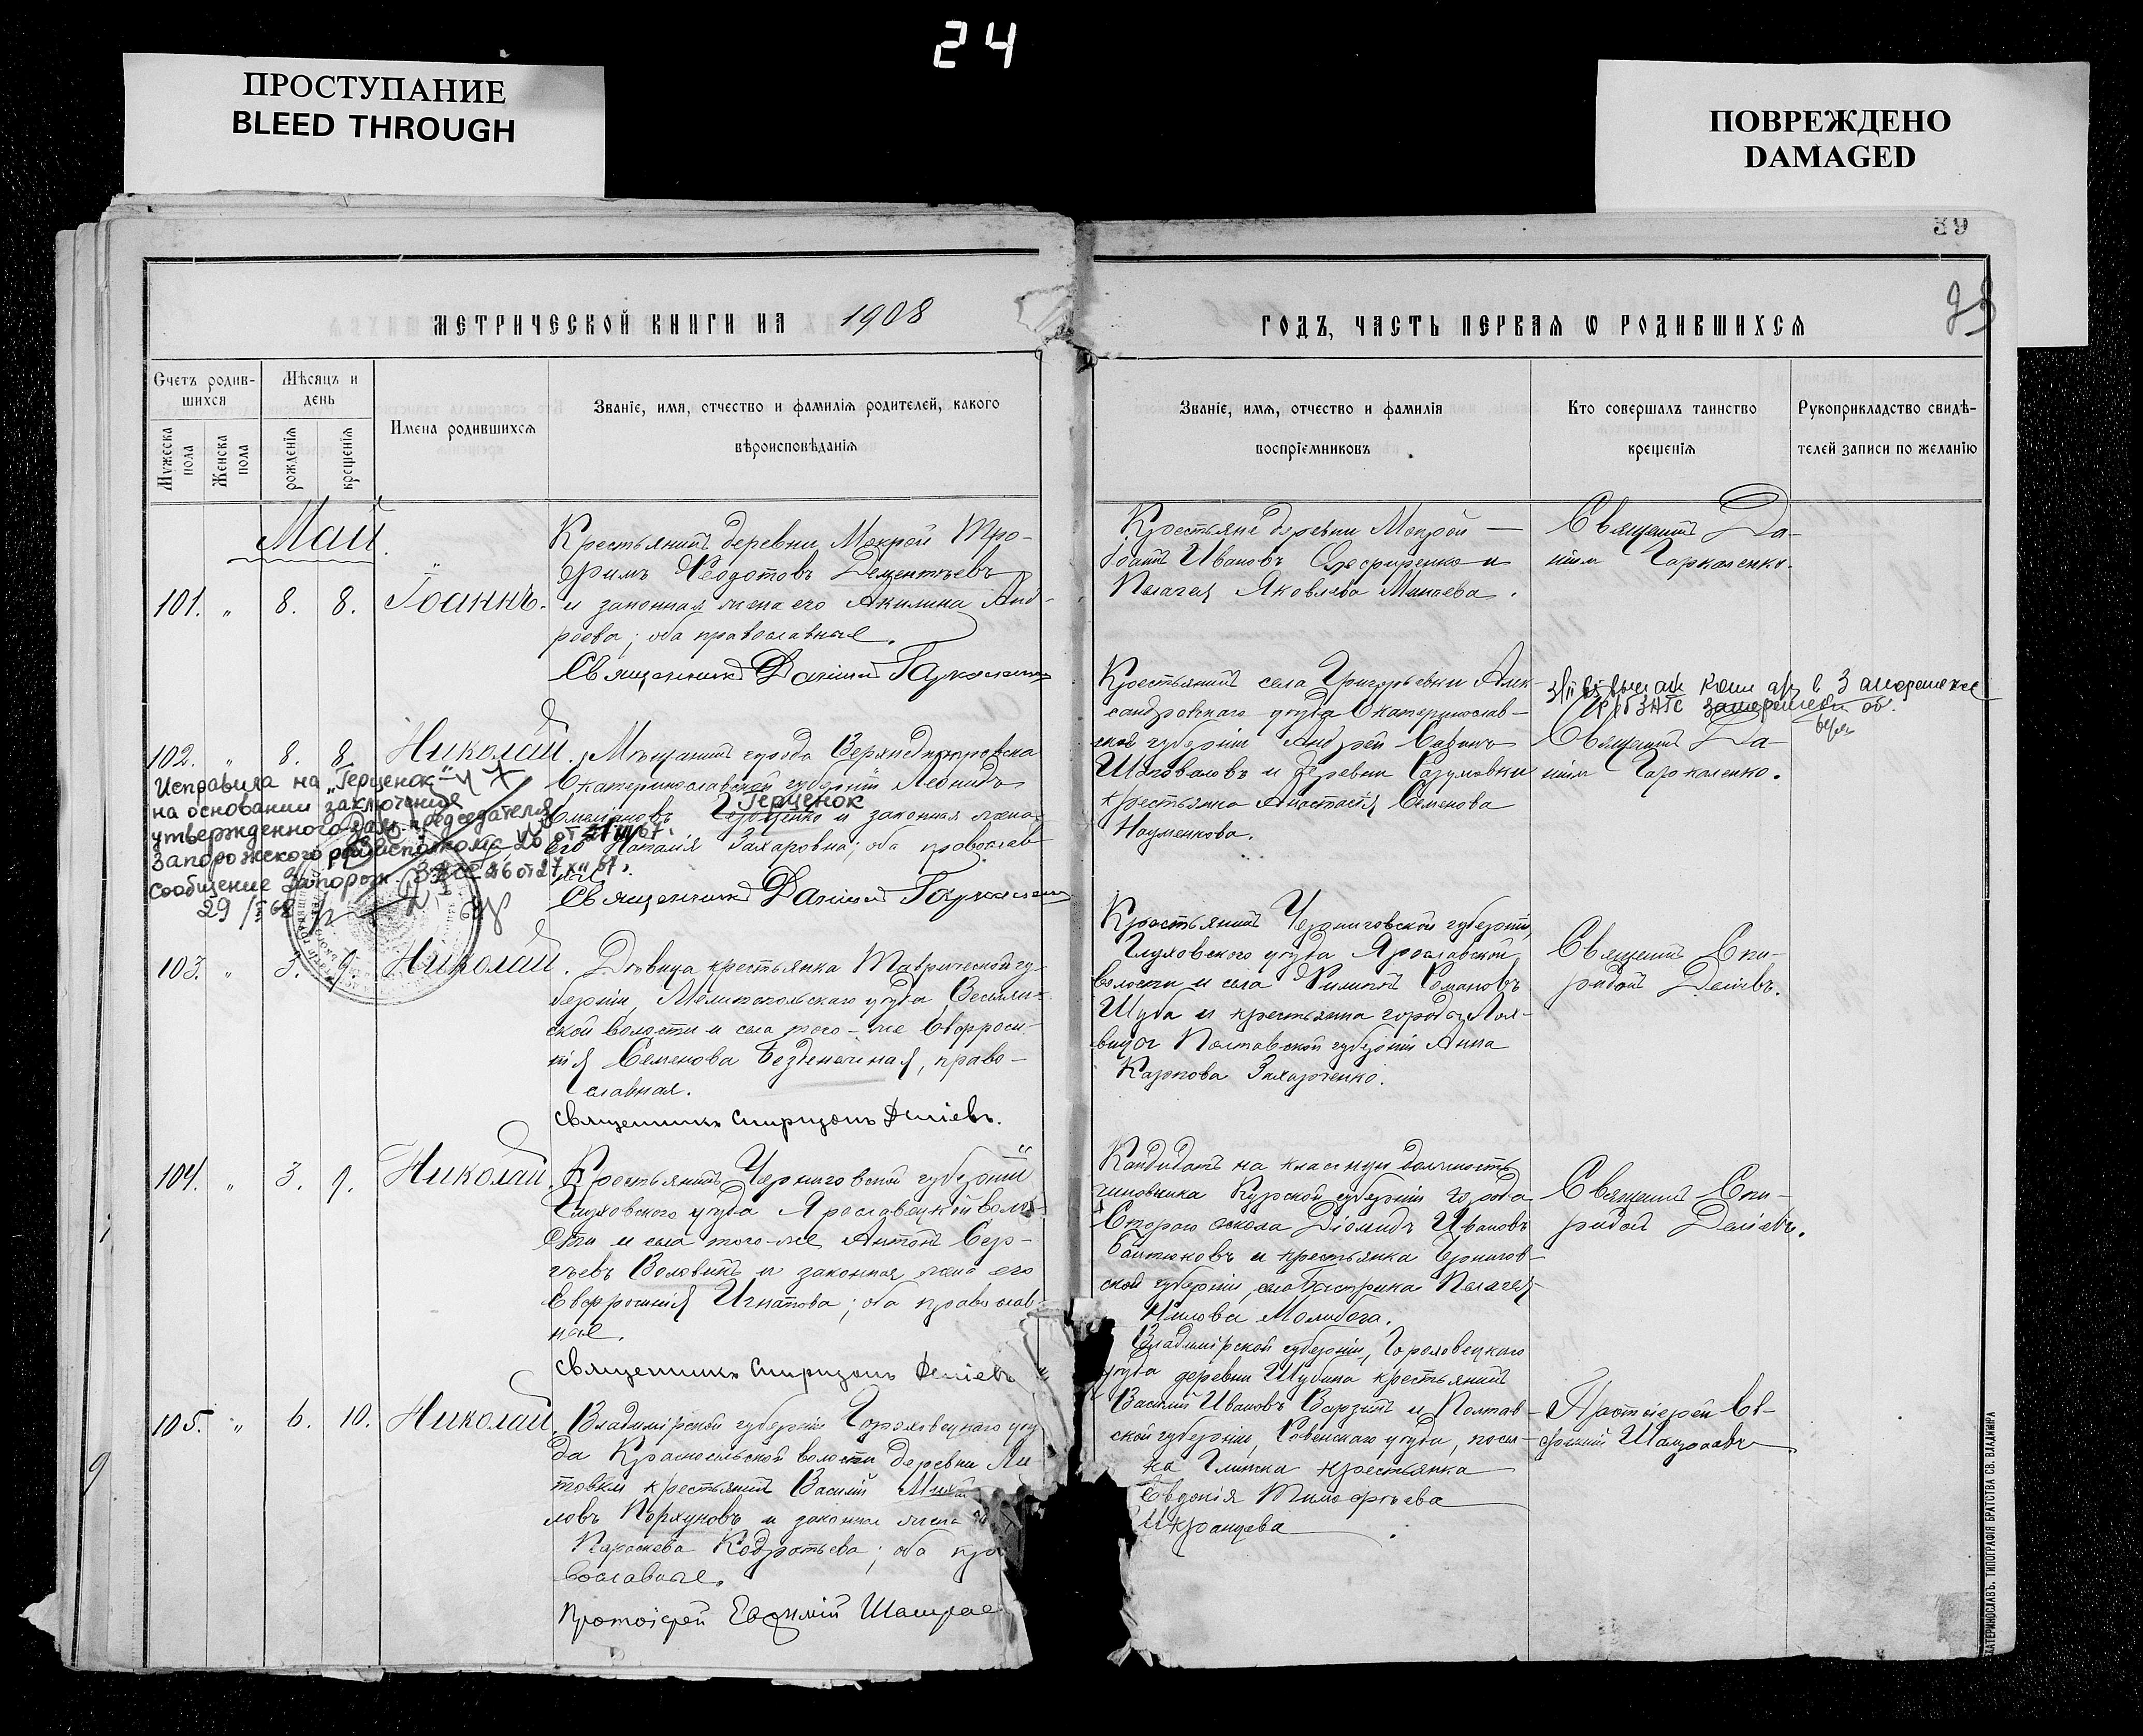 24
ПРОСТУПАНИЕ
BLEED THROUGH
ПОВРЕЖДЕНО
DAMAGED
39
МЕТРИЧЕСКОЙ КНИГИ НА 1908
ГОДЪ, ЧАСТЬ ПЕРВАЯ Ѡ РОДИВШИХСЯ
Счетъ родив-
шихся
Мѣсяцъ и
день
Мужеска
пола
Женска
пола
рожденія
крещенія
Имена родившихся
Званіе, имя, отчество и фамилія родителей, какого
вѣроисповѣданія
Званіе, имя, отчество и фамилія
воспріемниковъ
Кто совершалъ таинство
крещенія
Рукоприкладство свидѣ-
телей записи по желанію
Май
101. " 8. 8. Іоаннъ.
Крестьянинъ деревни Мокрой Тро-
фимъ Ѳеодотовъ Дементьевъ
и законная жена его Акилина Анд-
реева; оба православные.
Священникъ Даніилъ
Крестьяне деревни Мокрой —
Иванъ и
Пелагея Яковлева
Священникъ Да-
ніилъ
102. " 8. 8. Николай.
Мѣщанинъ города Верхнеднѣпровска
Екатеринославской губерніи Леонидъ
Герценок
и законная жена
его Наталія Захаровна; оба православ-
ные.
Священникъ Даніилъ
Исправила на "Герценок"
на основании заключение
утвержденного Зам. председателя
Запорожского
Сообщение Запорож. от 27 XII 67.
Крестьянинъ села Григорьевки Алек-
сандровскаго уѣзда Екатеринослав-
ской губерніи Андрей
Шаповаловъ и деревни Разумовки
крестьянка Анастасія Семенова
Науменкова.
Священникъ Да-
ніилъ
103. " 3. 9. Николай.
Дѣвица крестьянка Таврической гу-
берніи, Мелитопольскаго уѣзда Весели-
ской волости и села того-же Евфроси-
нія Семенова Безденежная, право-
славная.
Священникъ Спиридонъ Деліевъ.
Крестьянинъ Черниговской губерніи,
Глуховскаго уѣзда Ярославской
волости и села Филиппъ Романовъ
Шуба и крестьянка города Лох-
вица Полтавской губерніи Анна
Карпова Захарченко.
Священникъ Спи-
ридонъ Деліевъ.
104. " 3. 9. Николай.
Крестьянинъ Черниговской губерніи
Глуховскаго уѣзда Ярославецкой воло-
сти и села того-же Антонъ Сер-
гѣевъ Воловикъ и законная жена его
Евфросинія Игнатова; оба православ-
ные.
Священникъ Спиридонъ Деліевъ
Кандидатъ на классную должность
чиновника Курской губерніи города
Стараго оскола Діомидъ Ивановъ
и крестьянка Чернигов-
ской губерніи, села Быстрика Пелагея
Молибога.
Священникъ Спи-
ридонъ Деліевъ.
105. " 6. 10. Николай.
Владимірской губерніи Гороховецкаго уѣз-
да Красносельской волости деревни
крестьянинъ Василій
ловъ и законная жена
Параскева Кодратьева; оба пра-
вославные.
Протоіерей Евфимій
Владимірской губерніи, Гороховецкаго
уѣзда деревни Шубина крестьянинъ
Василій Ивановъ и Полтав-
ской губерніи, Роменскаго уѣзда, посел-
ка Глинска крестьянка
Евдокія Тимофѣева
Протоіерей Ев-
фимій
9
ЕКАТЕРИНОСЛАВЪ. ТИПОГРАФІЯ БРАТСТВА СВ. ВЛАДИМІРА